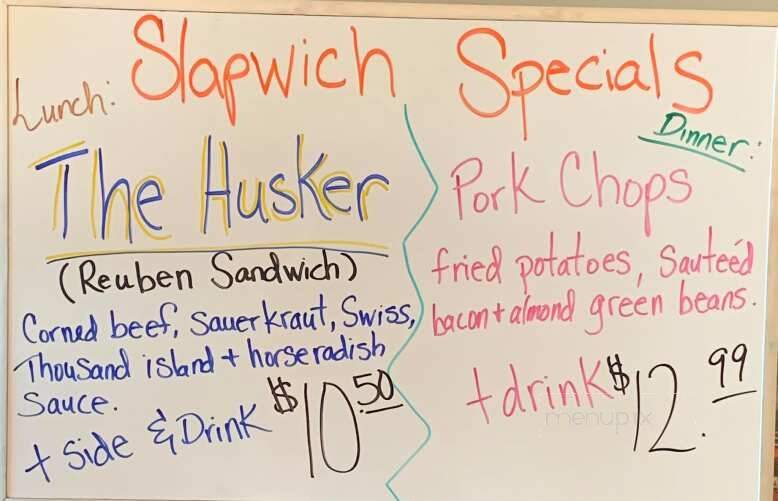 Slapwich Specials
Lunch:
The Husker
(Reuben Sandwich)
Corned beef, Sauerkraut, Swiss,
Thousand island + horseradish
Sauce.
+ Side & Drink $10.50
Dinner:
Pork Chops
fried potatoes, Sauteéd
bacon + almond green beans.
+ drink $12.99
menupix